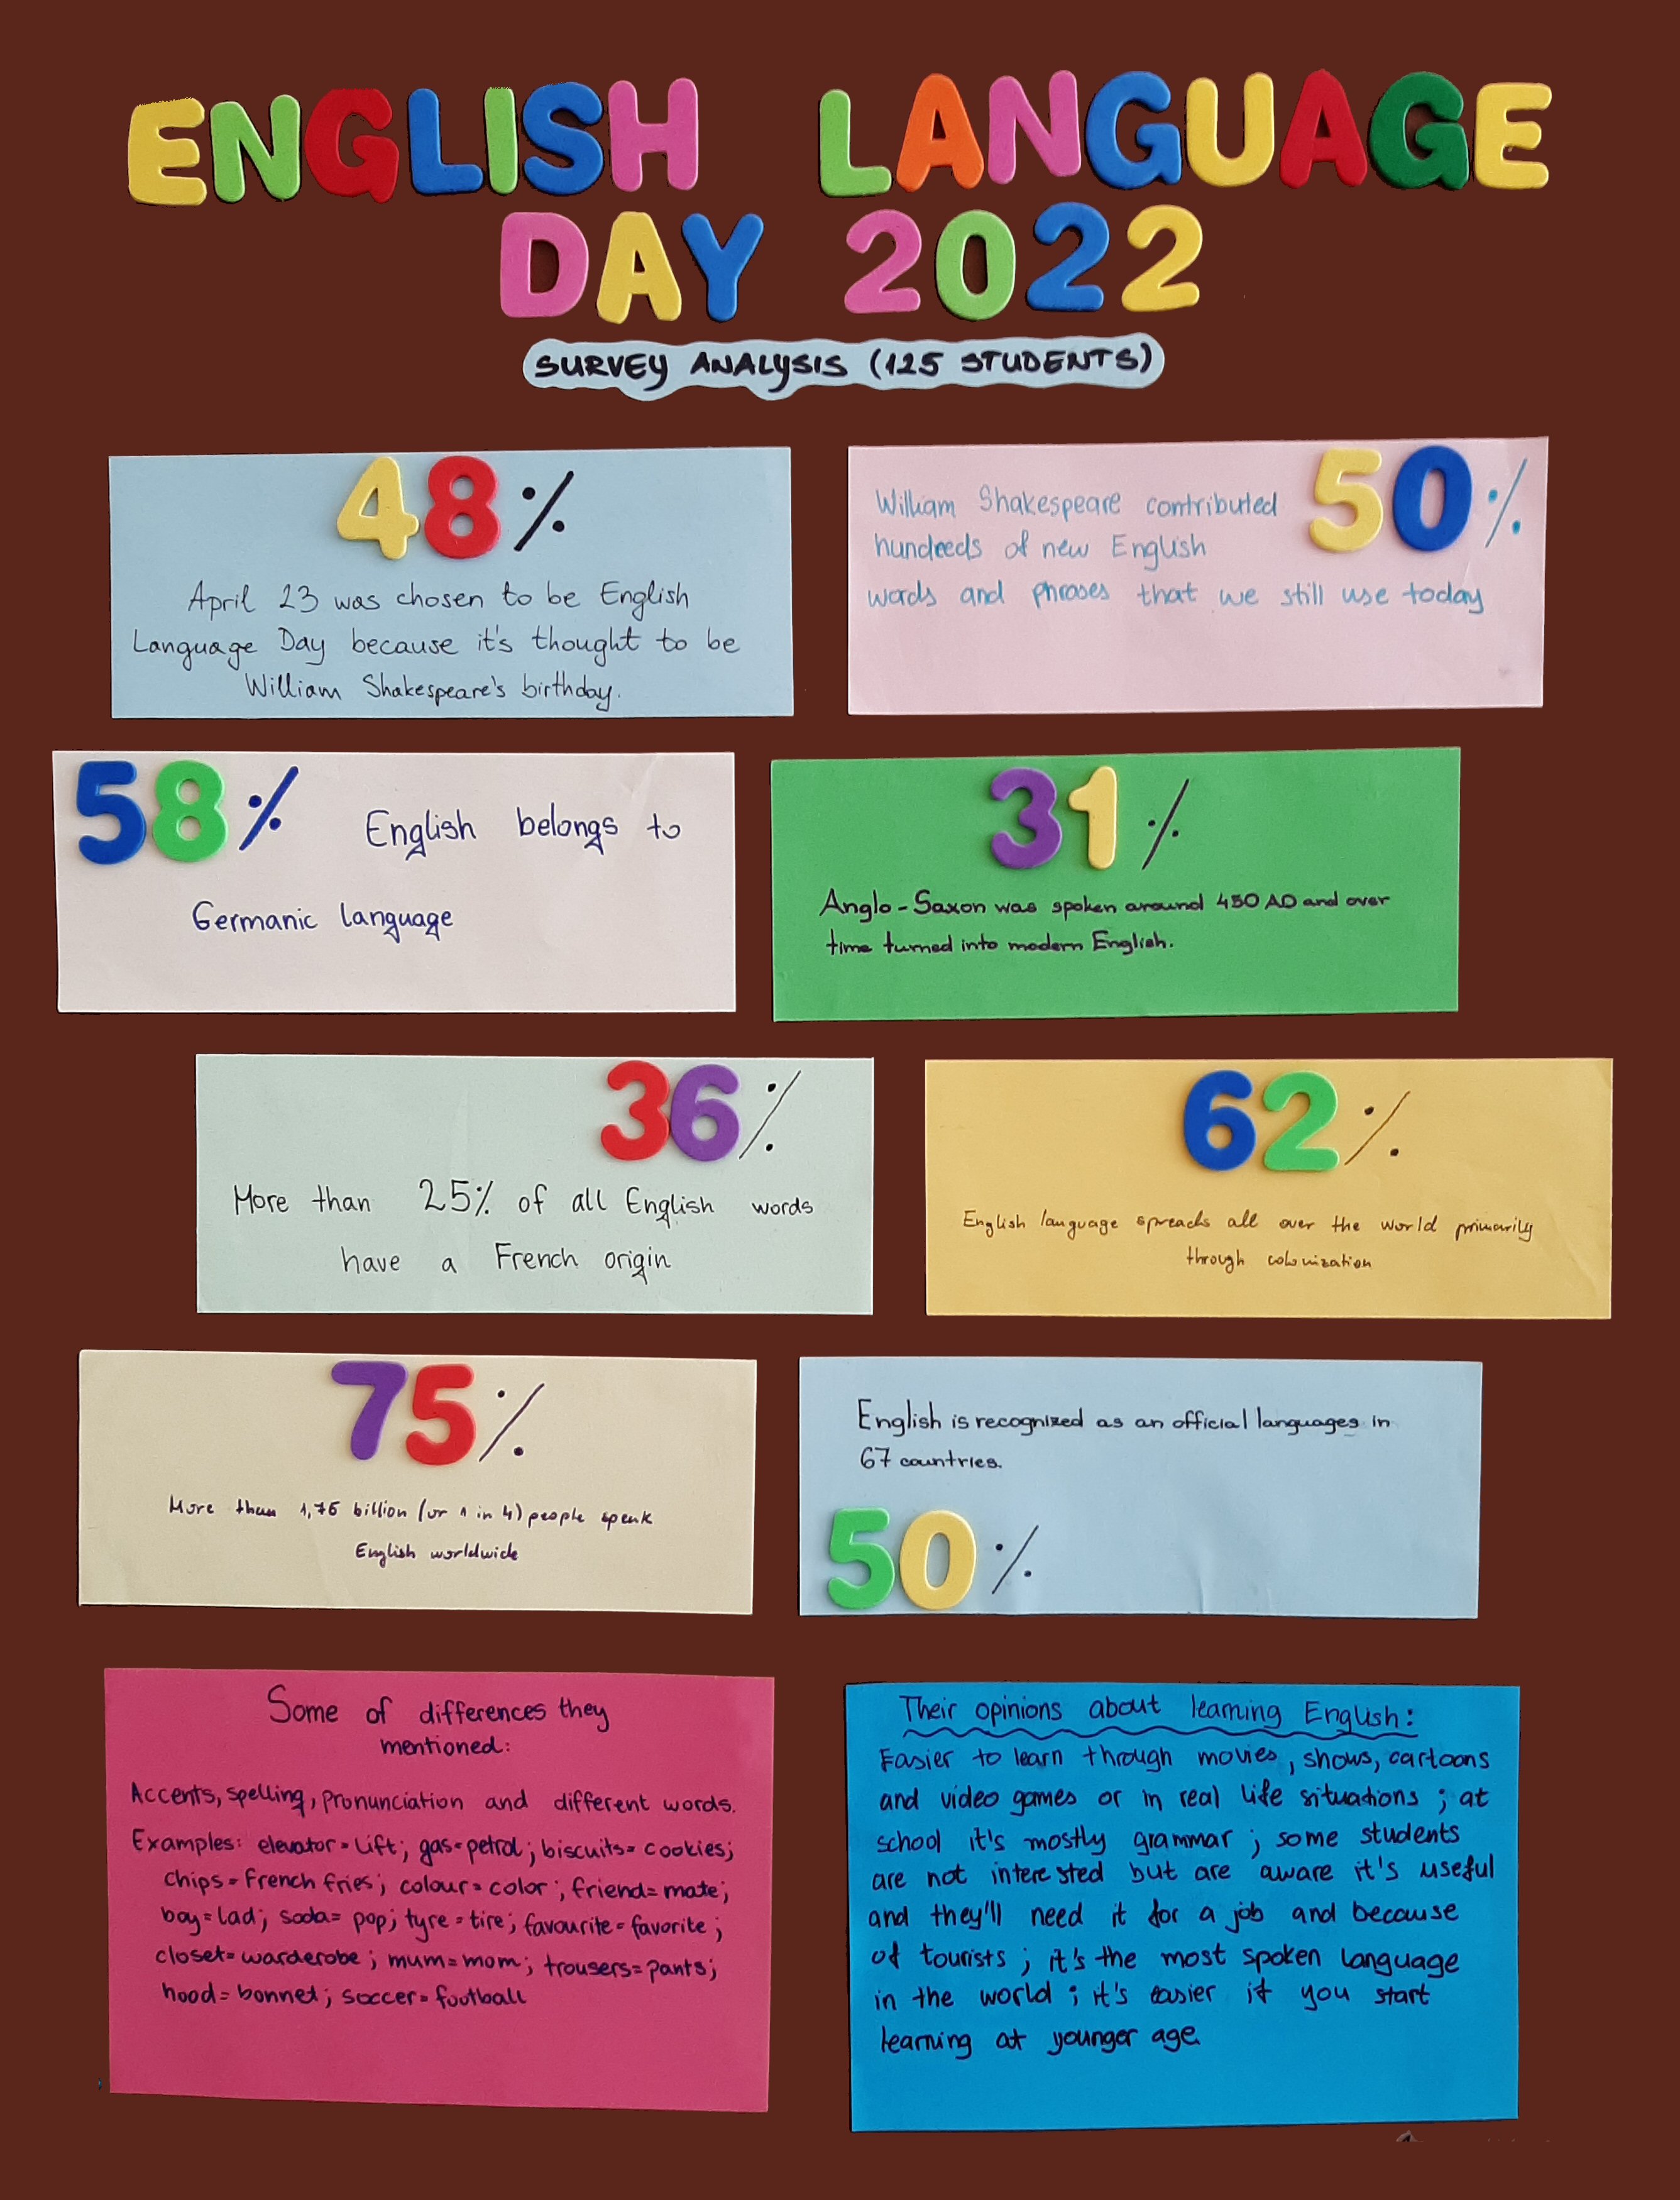 ENGLISH LANGUAGE
DAY 2022
SURVEY ANALYSIS (125 STUDENTS)
48%
April 23 was chosen to be English
Language Day because it's thought to be
William Shakespeare's birthday.
William Shakespeare contributed 50%
hundreds of new English
words and phrases that we still use today
58% English belongs to
Germanic language
31%
Anglo-Saxon was spoken around 450 AD and over
time turned into modern English.
36%
More than 25% of all English words
have a French origin
62%
English language spreads all over the world primarily
through colonization
75%
More than 1,75 billion (or 1 in 4) people speak
English worldwide
English is recognized as an official languages in
67 countries.
50%
Some of differences they
mentioned:
Accents, spelling, pronunciation and different words.
Examples: elevator=lift; gas=petrol; biscuits=cookies;
chips=French fries; colour=color; friend=mate;
boy=lad; soda=pop; tyre=tire; favourite=favorite;
closet=warderobe; mum=mom; trousers=pants;
hood=bonnet; soccer=football
Their opinions about learning English:
Easier to learn through movies, shows, cartoons
and video games or in real life situations; at
school it's mostly grammar; some students
are not interested but are aware it's useful
and they'll need it for a job and because
of tourists; it's the most spoken language
in the world; it's easier if you start
learning at younger age